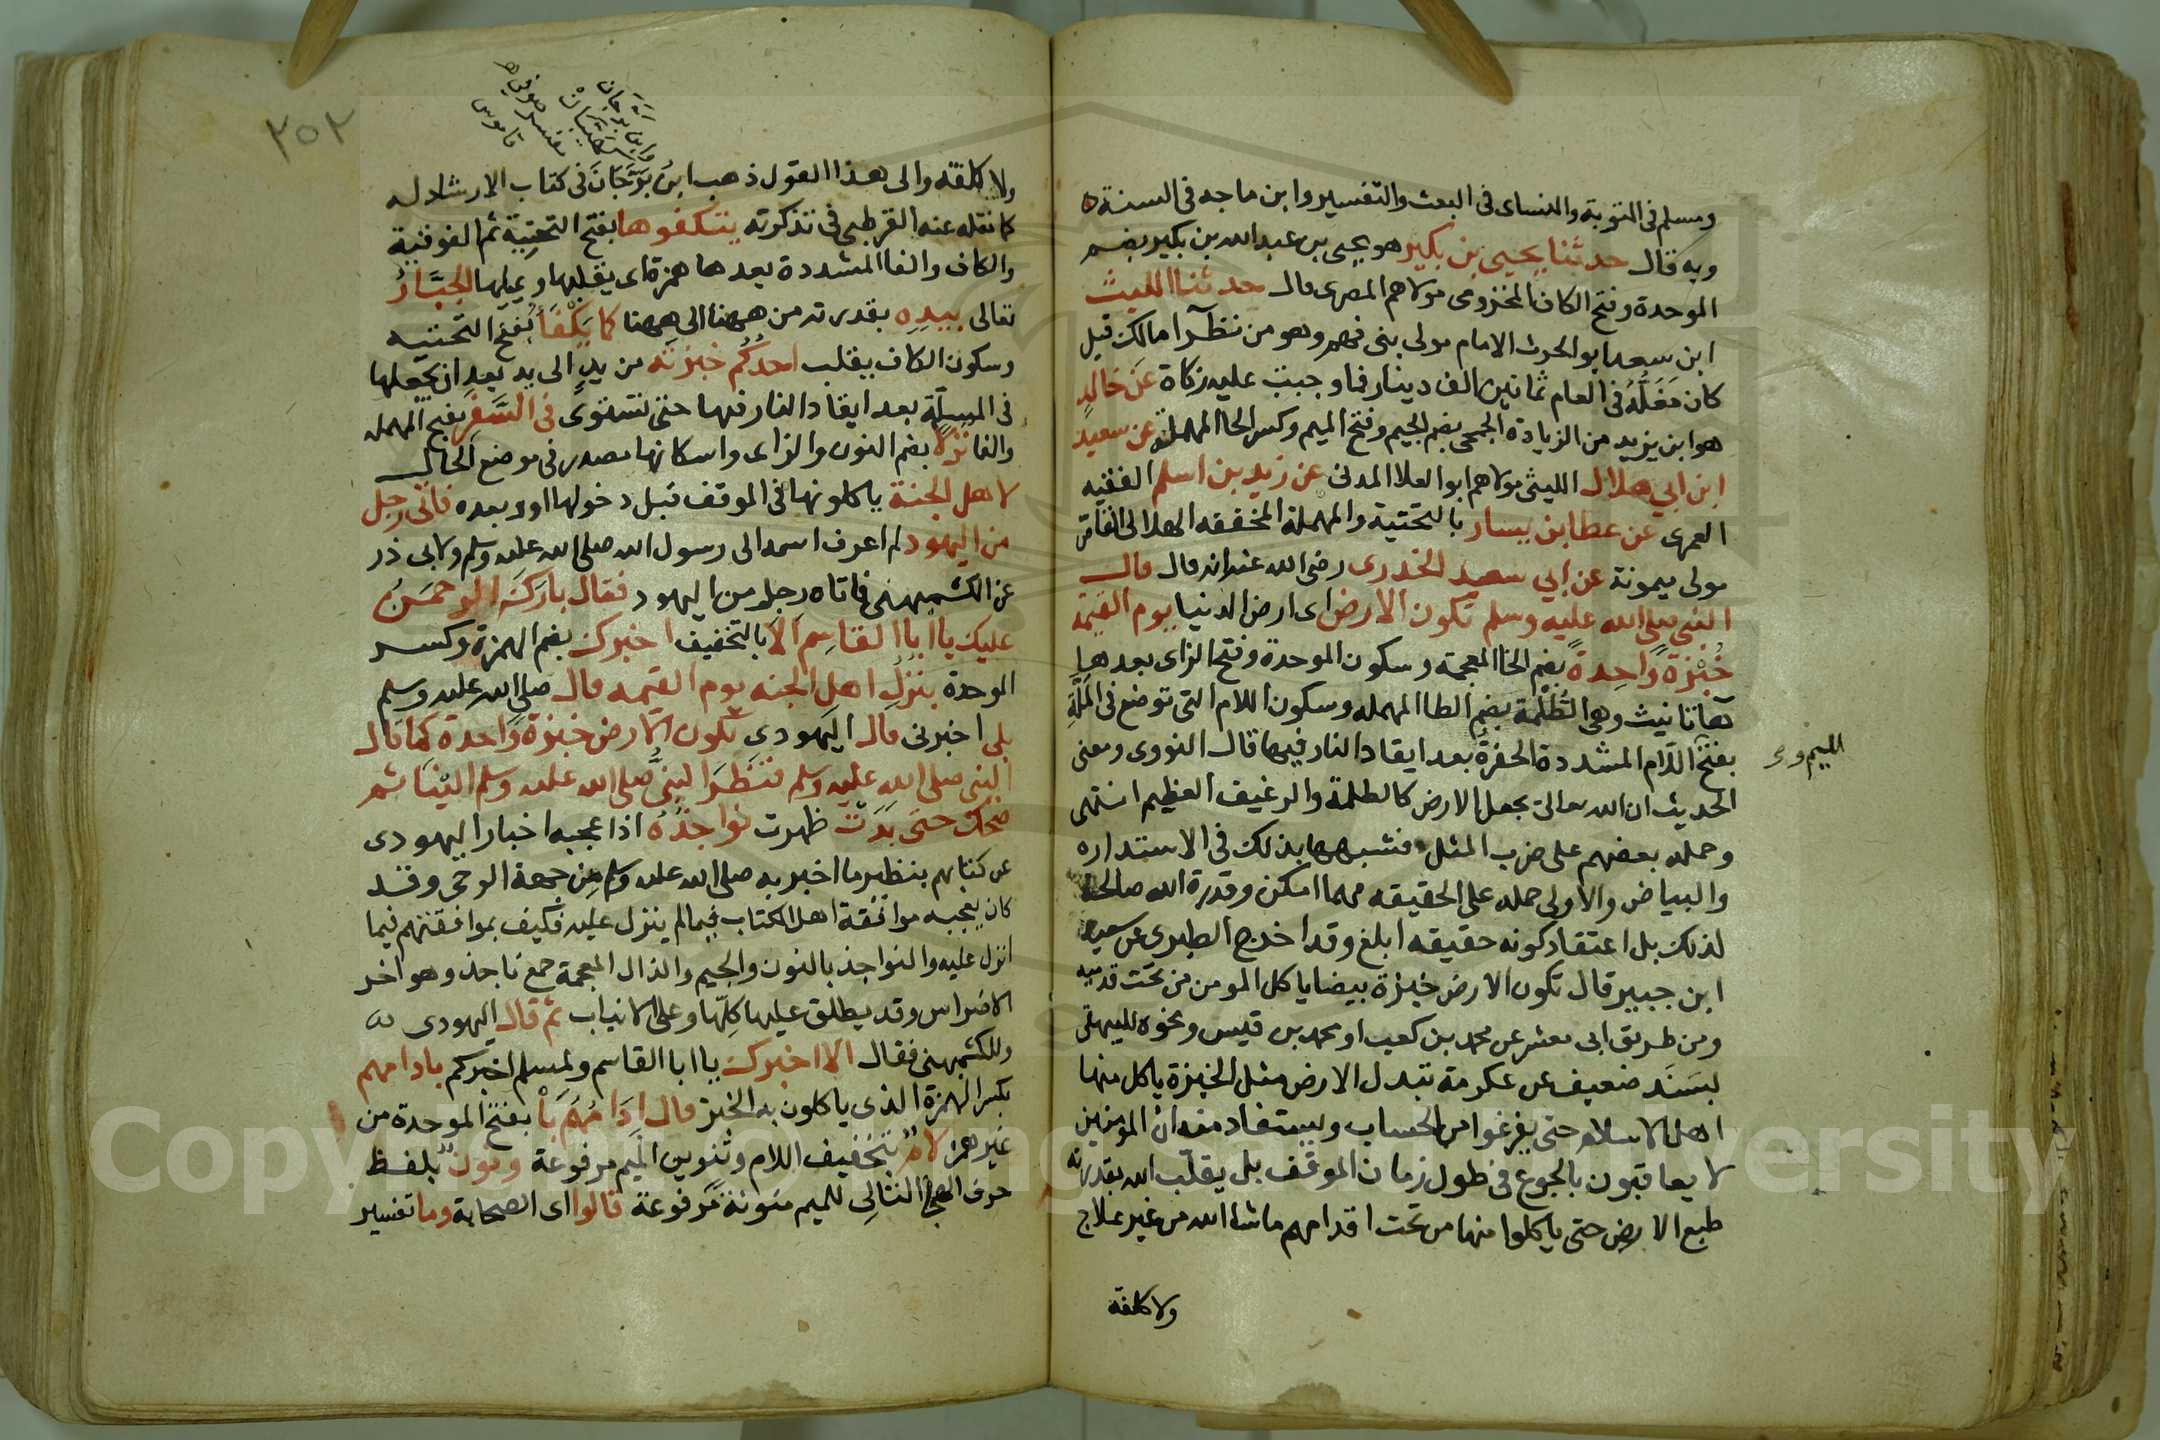 ومسلم فى التوبة والنساى فى البعث والتفسير وابن ماجه فى السنة ه
وبه قال حدثنا يحيى بن بكير هو يحيى بن عبد الله بن بكير بضم
الموحدة وفتح الكاف المخزومى مولاهم المصرى قال حدثنا الليث
ابن سعد ابو الحرث الامام مولى بنى فهم وهو من نظرآ مالك قيل
كان مَغَلُّهُ فى العام ثمانين الف دينار فما وجبت عليه زكاة عَن خالدٍ
هو ابن يزيد من الزيادة الجمحى بضم الجيم وفتح الميم وكسر الحا المهملة عن سعيد
ابن ابي هلال الليثى مولاهم ابو العلا المدنى عن زيد بن اسلم الفقيه
العمرى عن عطا بن يسار بالتحتية والمهملة المخففه الهلالى القاص
مولى ميمونة عن ابي سعيد الخدرى رضى الله عنه انه قال قال
النبى صلى الله عليه وسلم تكون الارض اى ارض الدنيا يوم القيمة
خُبْزَةً وَاحِدةً بضم الخا المعجمة وسكون الموحدة وفتح الزاى بعدها
هآ تانيث وهى الطُلْمَة بضم الطا المهمله وسكون اللام التى توضع فى المَلَّةِ
بفتح اللّام المشددة الحفرة بعد ايقاد النار فيها قال النووى ومعنى
الميم و
الحديث ان الله تعالى يجعل الارض كالطلمة والرغيف العظيم انتهى
وحمله بعضهم على ضرب المثل فشبهها بذلك فى الاستداره
والبياض والاولى حمله على الحقيقه مهما امكن وقدرة الله صالحة
لذلك بل اعتقاد كونه حقيقه ابلغ وقد اخرج الطبرى عن سعيد
ابن جبير قال تكون الارض خبزة بيضا ياكل المومن من تحت قدميه
ومن طريق ابى معشر عن محمد بن كعب او محمد بن قيس ونحوه للبيهقى
بسَنَد ضعيف عن عكرمة تبدل الارض مثل الخبزة ياكل منها
اهل الاسلام حتى يفرغوا من الحساب ويستفاد منه ان المومنين
لا يعاقبون بالجوع فى طول زمان الموقف بل يقلّب الله بقدرته
طبع الارض حتى ياكلوا منها من تحت اقدامهم ماشا الله من غير علاج
ولا كلفة
٢٥٢
وابن برجان
مفسر صوفى ه
قاموس
ولا كلفة والى هذا القول ذهب ابن بَرَّجَانَ فى كتاب الارشاد له
كما نقله عنه القرطبى فى تذكرته يتكفوها بفتح التحتِيَّة ثم الفوقية
والكاف والفا المشددة بعدها همزة اى يقلبها ويميلها الجَبَّارُ
تعالى بيدِهِ بقدرته من ههنا الى ههنا كما يَكْفَأُ بفتح التحتيه
وسكون الكاف يقلب احدُكُم خبزته من يدٍ الى يد بعد ان يجعلها
فى المَلَّة بعد ايقاد النار فيها حتى تستوى فى السَّفَرِ بفتح المهمله
والفا نُزُلًا بضم النون والزاى واسكانها مصدر فى موضع الحال
لاهل الجنة ياكلونها فى الموقف قبل دخولها او بعده فاتى رجل
من اليهود لم اعرف اسمه الى رسول الله صلى الله عليه وسلم ولابى ذر
عن الكشميهنى فاتاه رجل من اليهود فقال بارَكَ الرحمَنُ
عليك يا ابا القاسِم اَلَا بالتخفيف اخبرك بضم الهمزة وكسر
الموحدة بنُزُلِ اهل الجنه يوم القيمه قال صلى الله عليه وسلم
بلى اخبرنى قال اليهودى تكون الارض خبزةً وَاحدة كما قال
النبى صلى الله عليه وسلم فنَظَرَ النبىُّ صلى الله عليه وسلم الينا ثم
ضحك حتى بَدَتْ ظهرت نواجذُهُ اذ اعجبه اخبار اليهودى
عن كتابهم بنظير ما اخبر به صلى الله عليه وسلم من جهة الوحى وقد
كان يعجبه موافقة اهل الكتاب فيما لم ينزل عليه فكيف بموافقتهم فيما
انزل عليه والنواجذ بالنون والجيم والذال المعجمة جمع ناجذ وهو اخر
الاضراس وقد يطلق عليها كلّها وعلى الانياب ثم قال اليهودى
وللكشميهنى فقال الا اخبرك يا ابا القاسم ولمسلم اخبركم بادامهم
بكسر الهمزة الذى ياكلون به الخبز قال اِدَامُهُم بَا بفتح الموحدة من
غير همز لامٌ بتخفيف اللام وتنوين الميم مرفوعة ونون بلفظ
حرف الهجا التالى للميم منونة مرفوعة قالوا اى الصحابة وما تفسير